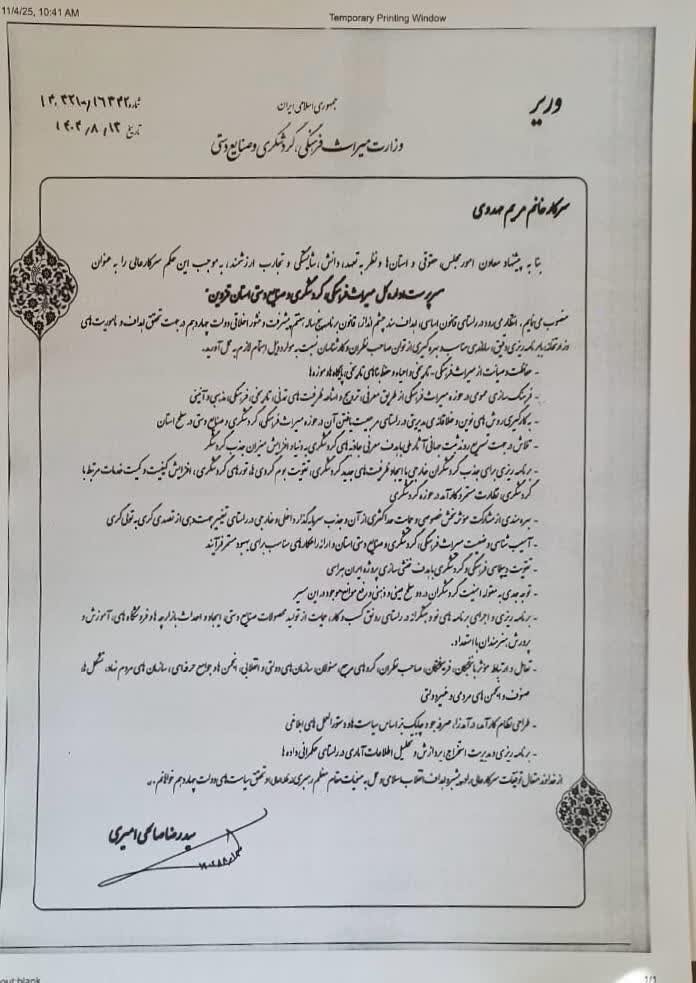 11/4/25, 10:41 AM
Temporary Printing Window
وزیر
جمهوری اسلامی ایران
وزارت میراث فرهنگی، گردشگری و صنایع دستی
شماره
تاریخ ۱۴۰۴/۸/۱۳
سرکار خانم مریم مهدوی
بنا به پیشنهاد معاون امور مجلس، حقوقی و استان‌ها و نظر به تعهد، دانش، شایستگی و تجارب ارزشمند، به موجب این حکم سرکارعالی را به عنوان
سرپرست اداره کل میراث فرهنگی، گردشگری و صنایع دستی استان قزوین"
منصوب می‌نمایم. انتظار می‌رود در راستای قانون اساسی، اهداف سند چشم انداز، قانون برنامه پنج ساله هفتم پیشرفت و منشور اخلاقی دولت چهاردهم در جهت تحقق اهداف و ماموریت های
وزارتخانه، با برنامه ریزی دقیق، ساماندهی مناسب و بهره گیری از توان صاحب نظران و کارشناسان نسبت به موارد ذیل اهتمام لازم به عمل آورید.
- حفاظت و صیانت از میراث فرهنگی - تاریخی و احیاء و حفظ بناهای تاریخی، پایگاه‌ها و موزه‌ها
- فرهنگ سازی عمومی در حوزه میراث فرهنگی از طریق معرفی، ترویج و اشاعه ظرفیت های تمدنی، تاریخی، فرهنگی، مذهبی و آئینی
- به کارگیری روش های نوین و خلاقانه مدیریتی در راستای مرجعیت یافتن آن در حوزه میراث فرهنگی، گردشگری و صنایع دستی در سطح استان
- تلاش در جهت تسریع روند ثبت جهانی آثار ملی با هدف معرفی جاذبه های گردشگری به دنیا و افزایش میزان جذب گردشگر
- برنامه ریزی برای جذب گردشگران خارجی با ایجاد ظرفیت های جدید گردشگری، تقویت بوم گردی ها، تورهای گردشگری، افزایش کیفیت و کمیت خدمات مرتبط با
گردشگری، نظارت مستمر و کارآمد در حوزه گردشگری
- بهره مندی از مشارکت مؤثر بخش خصوصی و حمایت حداکثری از آن و جذب سرمایه گذار داخلی و خارجی در راستای تغییر جهت دهی از تصدی گری به تولی گری
- آسیب شناسی وضعیت میراث فرهنگی، گردشگری و صنایع دستی استان و ارائه راهکارهای مناسب برای بهبود مستمر فرآیند
- تقویت دیپلماسی فرهنگی و گردشگری با هدف خنثی سازی پروژه ایران هراسی
- توجه جدی به مقوله امنیت گردشگران در دو سطح عینی و ذهنی و رفع موانع موجود در این مسیر
- برنامه ریزی و اجرای برنامه های نوآورانه در راستای رونق کسب و کار، حمایت از تولید محصولات صنایع دستی، ایجاد و احداث بازارچه ها و فروشگاه های، آموزش و
پرورش هنرمندان با استعداد.
- تعامل و ارتباط مؤثر با نخبگان، فرهیختگان، صاحب نظران، گروه های مرجع، مسئولان، سازمان های دولتی و انقلابی، انجمن ها و جوامع حرفه ای، سازمان های مردم نهاد، تشکل ها،
صنوف و انجمن های مردمی و غیردولتی
- طراحی نظام کارآمد، درآمدزا، صرفه جو و چابک بر اساس سیاست ها و دستورالعمل های ابلاغی
- برنامه ریزی و مدیریت استخراج، پردازش و تحلیل اطلاعات آماری در راستای حکمرانی داده ها
از خداوند متعال توفیقات سرکارعالی را در جهت پیشبرد اهداف انقلاب اسلامی و عمل به منویات مقام معظم رهبری (مدظله العالی) و تحقق سیاست های دولت چهاردهم خواهانم.
سیدرضا صالحی امیری
out:blank
1/1